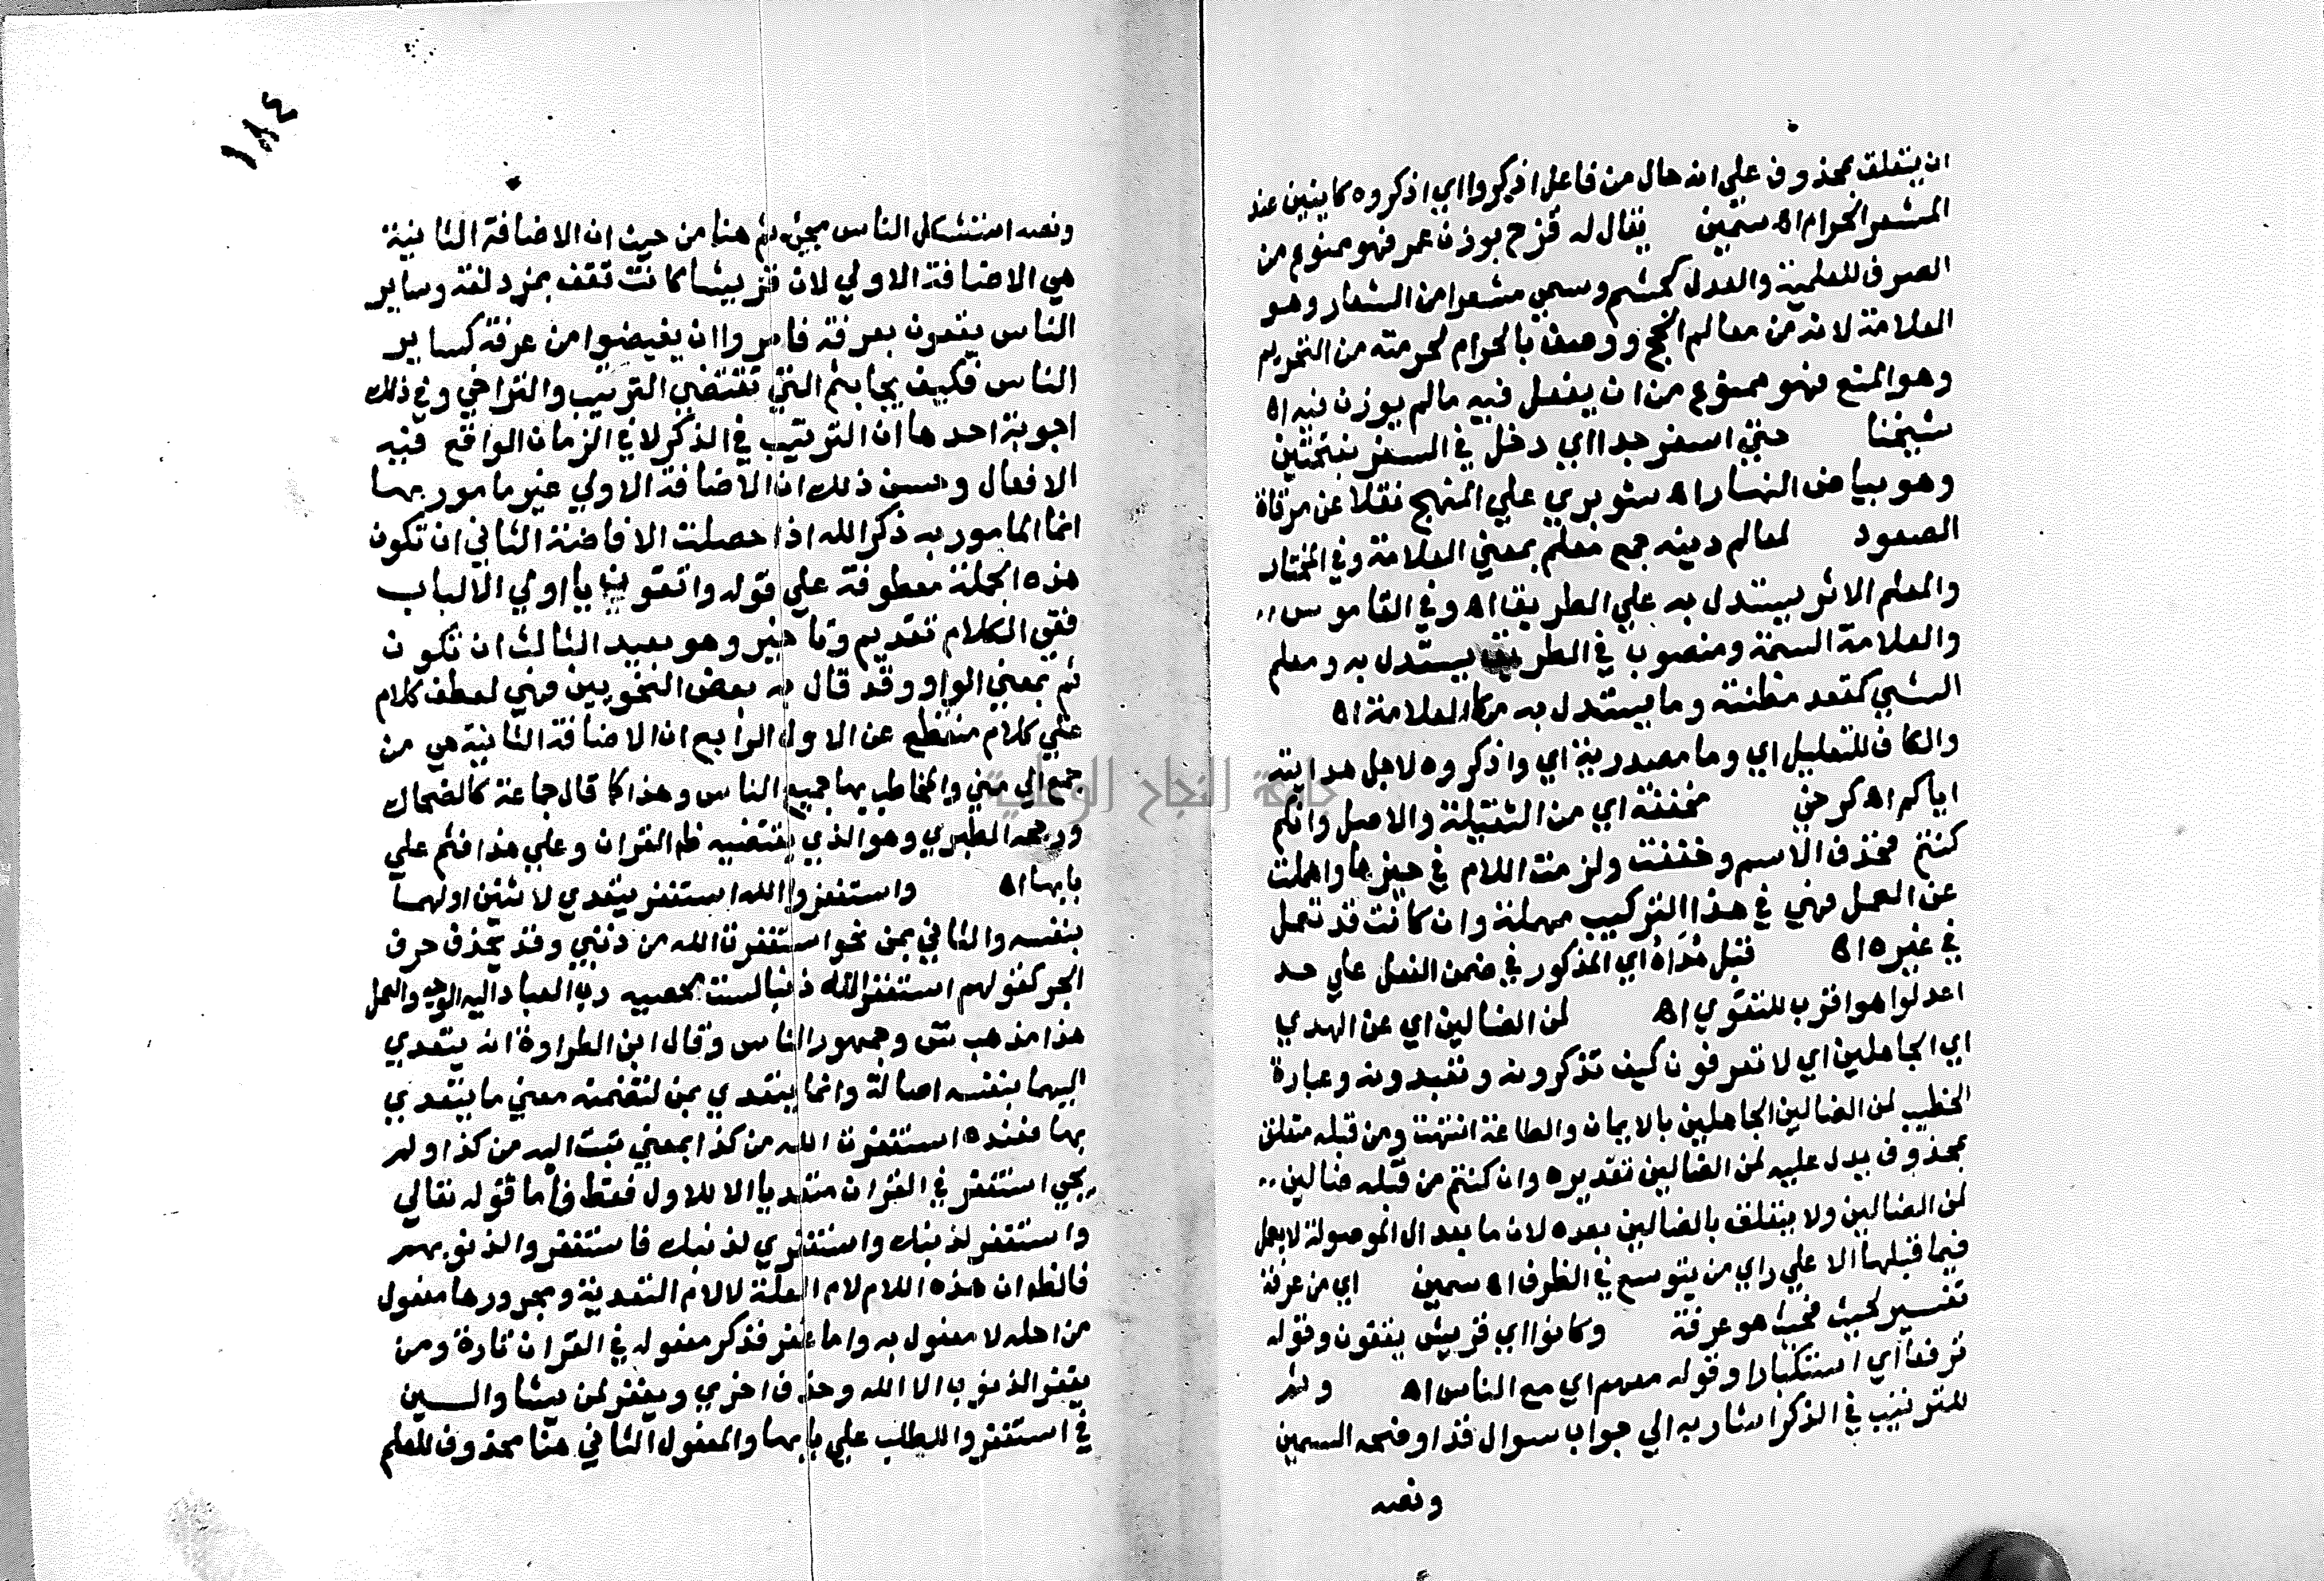 ان يتعلق بمحذوف علي انه حال من فاعل اذكروا اي اذكروه كاينين عند
المشعر الحرام اه سمين يقال له قزح بوزن عمر فهو ممنوع من
الصرف للعلمية والعدل كجشم وسمي مشعرا من الشعار وهو
العلامة لانه من معالم الحج ووصف بالحرام لحرمته من التحريم
وهو المنع فهو ممنوع من ان يفعل فيه مالم يوذن فيه اه
شيخنا حتي اسفر جدا اي دخل في السفر بفتحتين
وهو بياض النهار اه شوبري علي المنهج نقلا عن مرقاة
الصعود لمعالم دينه جمع معلم بمعني العلامة وفي المختار
والمعلم الاثر يستدل به علي الطريق اه وفي القاموس
والعلامة السمة ومنصوب في الطريق يستدل به ومعلم
الشي كمقعد مظنته وما يستدل به كالعلامة اه
والكاف للتعليل اي وما مصدرية اي واذكروه لاجل هدايته
اياكم اه كرخي مخففة اي من الثقيلة والاصل وانكم
كنتم فحذف الاسم وخففت ولزمت اللام في حيزها واهملت
عن العمل فهي في هذا التركيب مهملة وان كانت قد تعمل
في غيره اه قبل هداه اي المذكور في ضمن الفعل علي حد
اعدلوا هو اقرب للتقوي اه لمن الضالين اي عن الهدي
اي الجاهلين اي لا تعرفون كيف تذكرونه وتعبدونه وعبارة
الخطيب لمن الضالين الجاهلين بالايمان والطاعة انتهت ومن قبله متعلق
بمحذوف يدل عليه لمن الضالين تقديره وان كنتم من قبله ضالين
لمن الضالين ولا يتعلق بالضالين بعده لان ما بعد ال الموصولة لا يعمل
فيما قبلها الا علي راي من يتوسع في الظرف اه سمين اي من عرفة
تفسير لحيث فحيث هو عرفة وكانوا اي قريش يقفون وقوله
ترفعا اي استكبارا وقوله معهم اي مع الناس اه وثم
للترتيب في الذكر اشار به الي جواب سوال قد اوضحه السمين
ونصه
١٨٤
ونصه استشكل الناس مجي ثم هنا من حيث ان الافاضة الثانية
هي الافاضة الاولي لان قريشا كانت تقف بمزدلفة وساير
الناس يقفون بعرفة فامروا ان يفيضوا من عرفة كساير
الناس فكيف يجا بثم التي تقتضي الترتيب والتراخي وفي ذلك
اجوبة احدها ان الترتيب في الذكر لا في الزمان الواقع فيه
الافعال وحسن ذلك ان الافاضة الاولي غير مامور بها
انما المامور به ذكر الله اذا حصلت الافاضة الثاني ان تكون
هذه الجملة معطوفة علي قوله واتقون يا اولي الالباب
ففي الكلام تقديم وتاخير وهو بعيد الثالث ان تكون
ثم بمعني الواو وقد قال به بعض النحويين فهي لعطف كلام
علي كلام منقطع عن الاول الرابع ان الافاضة الثانية هي من
جمع الي مني والمخاطب بها جميع الناس وهذا كما قال جماعة كالضحاك
ورجحه الطبري وهو الذي يقتضيه ظم القران وعلي هذا فثم علي
بابها اه واستغفروا الله استغفر يتعدي لاثنين اولهما
بنفسه والثاني بمن نحو استغفرت الله من ذنبي وقد يحذف حرف
الجر كقولهم استغفر الله ذنبا لست محصيه رب العباد اليه الوجه والعمل
هذا مذهب س وجمهور الناس وقال ابن الطراوة انه يتعدي
اليهما بنفسه اصالة وانما يتعدي بمن لتضمنه معني ما يتعدي
بها فعنده استغفرت الله من كذا بمعني تبت اليه من كذا ولم
يجي استغفر في القران متعديا الا للاول فقط فاما قوله تعالي
واستغفر لذنبك واستغفري لذنبك فاستغفروا لذنوبهم
فالظ ان هذه اللام لام العلة لا لام التعدية ومجرورها مفعول
من اجله لا مفعول به واما غفر فذكر مفعوله في القران تارة ومن
يغفر الذنوب الا الله وحذف اخري ويغفر لمن يشا والسين
في استغفروا للطلب علي بابها والمفعول الثاني هنا محذوف للعلم
جامعة النجاح الوطنية